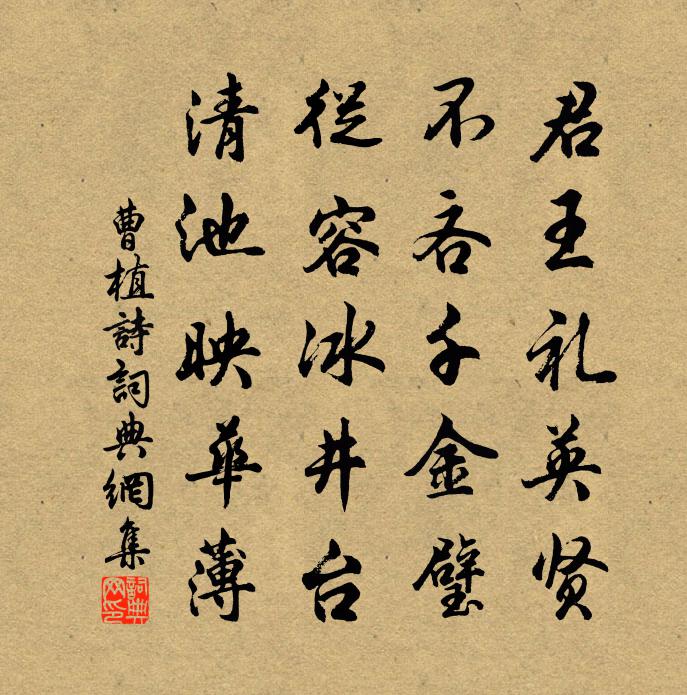 君王礼英贤
不吝千金璧
従容冰井台
清池映華薄
曹植詩詞典網集
詞典网印